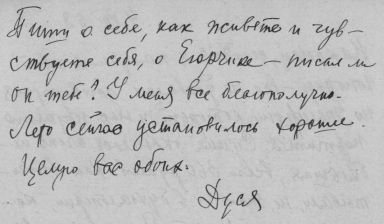 Пиши о себе, как живёте и чув-
ствуете себя, о Егорчике — писал ли
он тебе? У меня все благополучно.
Лето сейчас установилось хорошее.
Целую вас обоих.
Дуся